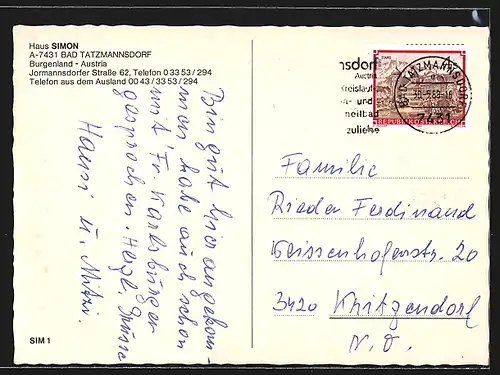 Haus SIMON
A-7431 BAD TATZMANNSDORF
Burgenland - Austria
Jormannsdorfer Straße 62, Telefon 0 33 53 / 294
Telefon aus dem Ausland 00 43 / 33 53 / 294
Bin gut hier angekom-
men habe auch schon
mit Fr. Karlsburger
gesprochen. Herzl. Grüsse
Hansi u. Mitzi.
SIM 1
nsdorf
Austria
Kreislauf
n- und
heilbad
zuliebe
REPUBLIK ÖSTERREICH
BAD TATZMANNSDORF
7431
Familie
Rieder Ferdinand
Weissenhoferstr. 20
3420 Kritzendorf
N. Ö.